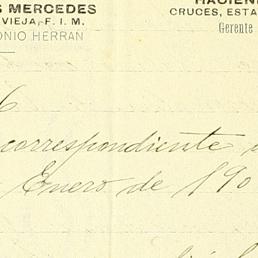 S MERCEDES
VIEJA, F. I. M.
ONIO HERRAN
HACIEN
CRUCES, ESTA
Gerente
correspondiente
Enero de 190